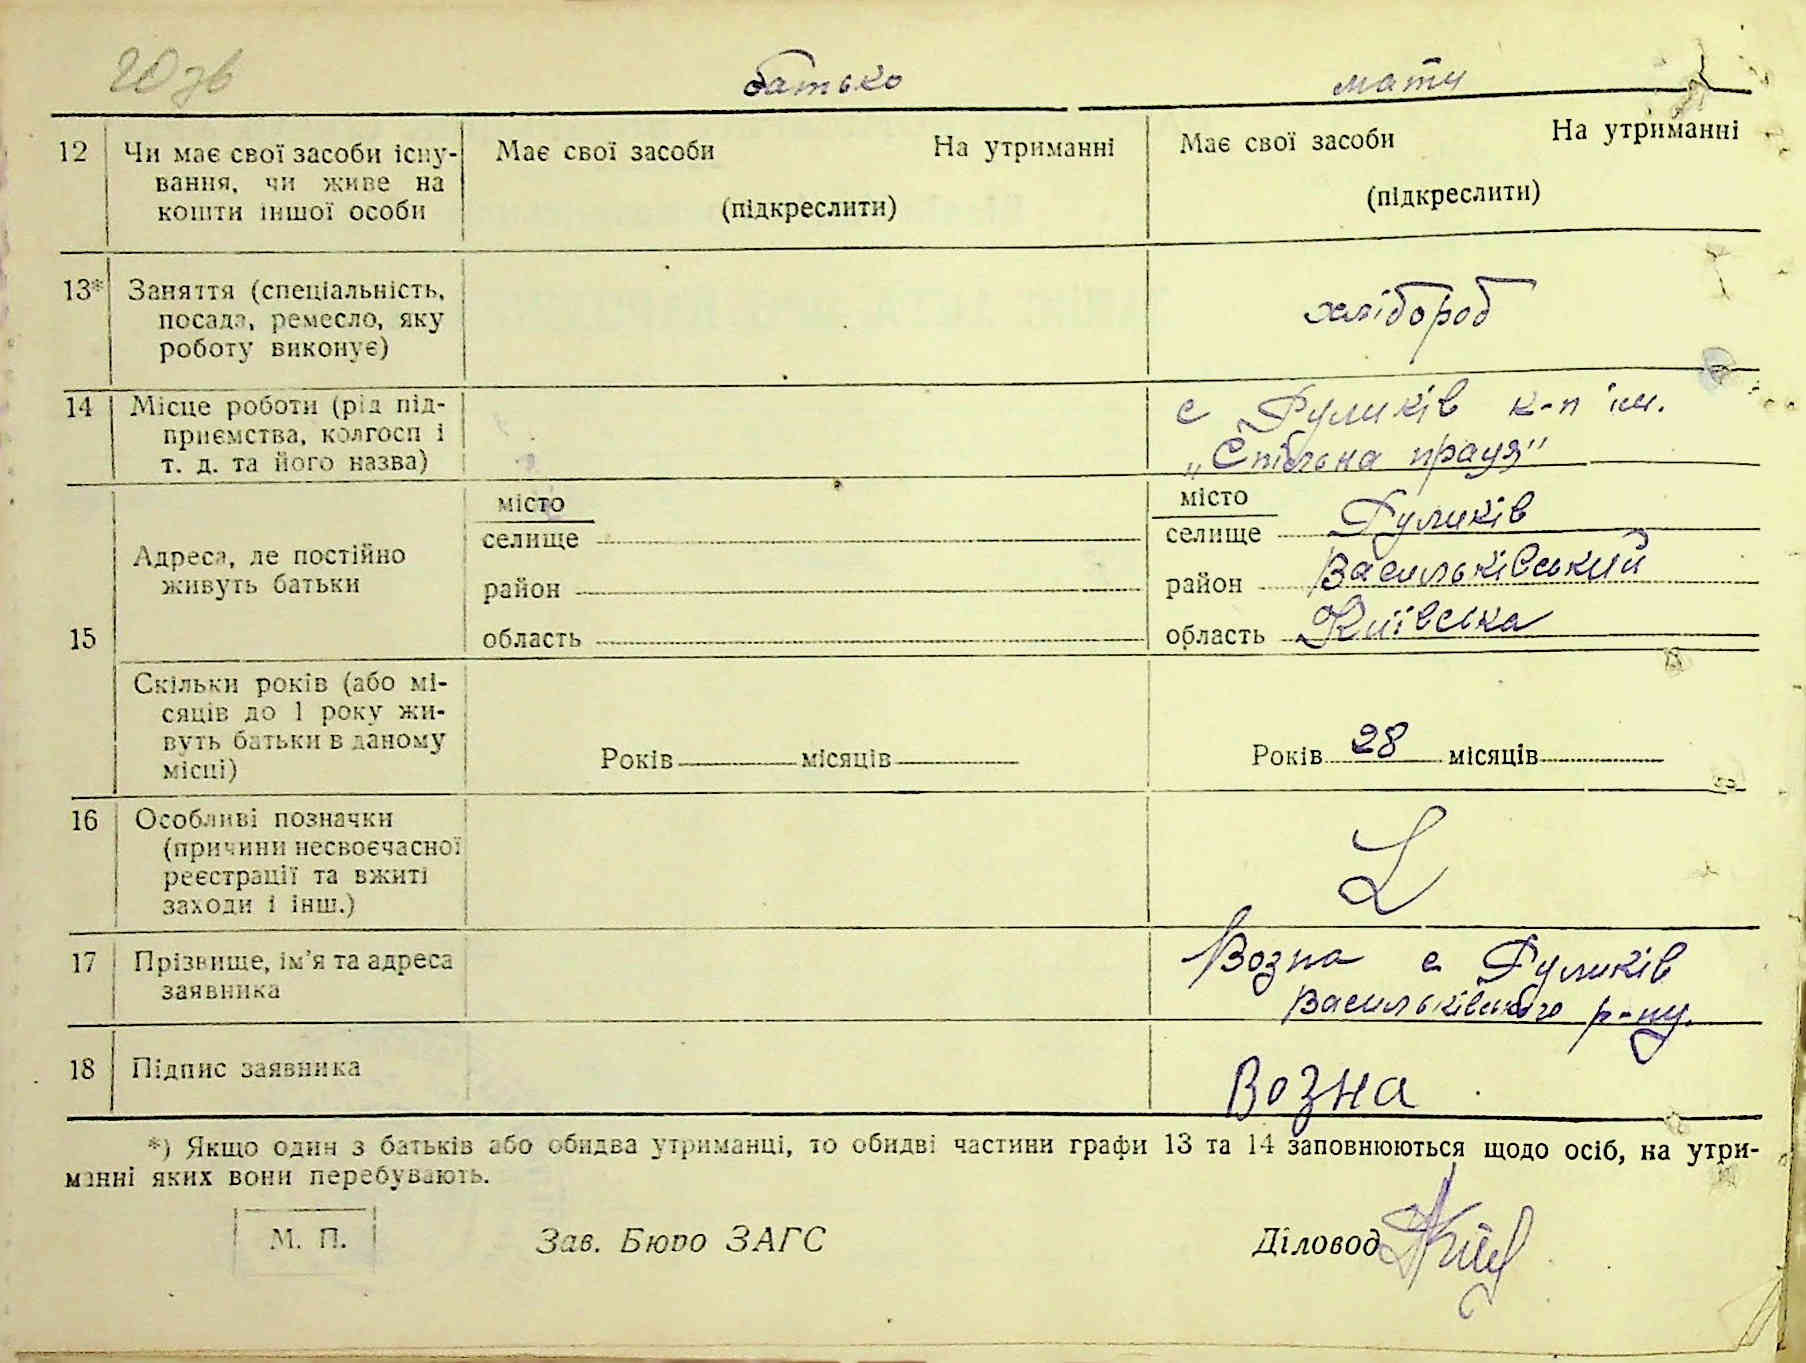 20 зв
батько мати
12 Чи має свої засоби існу- Має свої засоби На утриманні Має свої засоби На утриманні
вання, чи живе на
кошти іншої особи (підкреслити) (підкреслити)
13* Заняття (спеціальність,
посада, ремесло, яку хлібороб
роботу виконує)
14 Місце роботи (рід під- с Руликів к-п ім.
приємства, колгосп і „Спільна праця"
т. д. та його назва)
місто місто
селище селище Руликів
Адреса, де постійно
живуть батьки район район Васильківський
15 область область Київська
Скільки років (або мі-
сяців до 1 року жи-
вуть батьки в даному Років місяців Років 28 місяців
місці)
16 Особливі позначки
(причини несвоєчасної
реєстрації та вжиті
заходи і інш.)
17 Прізвище, ім'я та адреса Возна с Руликів
заявника Васильківського р-ну.
18 Підпис заявника Возна
*) Якщо один з батьків або обидва утриманці, то обидві частини графи 13 та 14 заповнюються щодо осіб, на утри-
манні яких вони перебувають.
М. П. Зав. Бюро ЗАГС Діловод